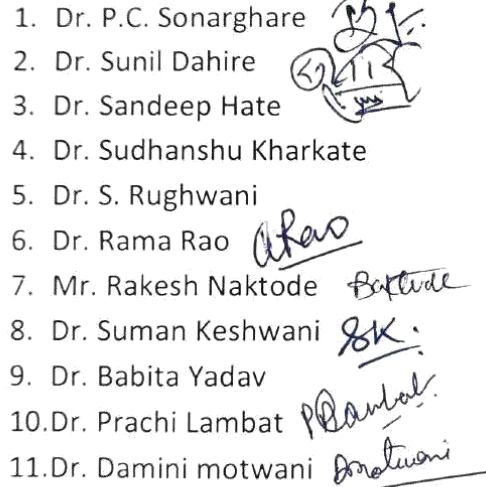 1. Dr. P.C. Sonarghare
2. Dr. Sunil Dahire
3. Dr. Sandeep Hate
4. Dr. Sudhanshu Kharkate
5. Dr. S. Rughwani
6. Dr. Rama Rao Rao
7. Mr. Rakesh Naktode
8. Dr. Suman Keshwani SK.
9. Dr. Babita Yadav
10.Dr. Prachi Lambat
11.Dr. Damini motwani